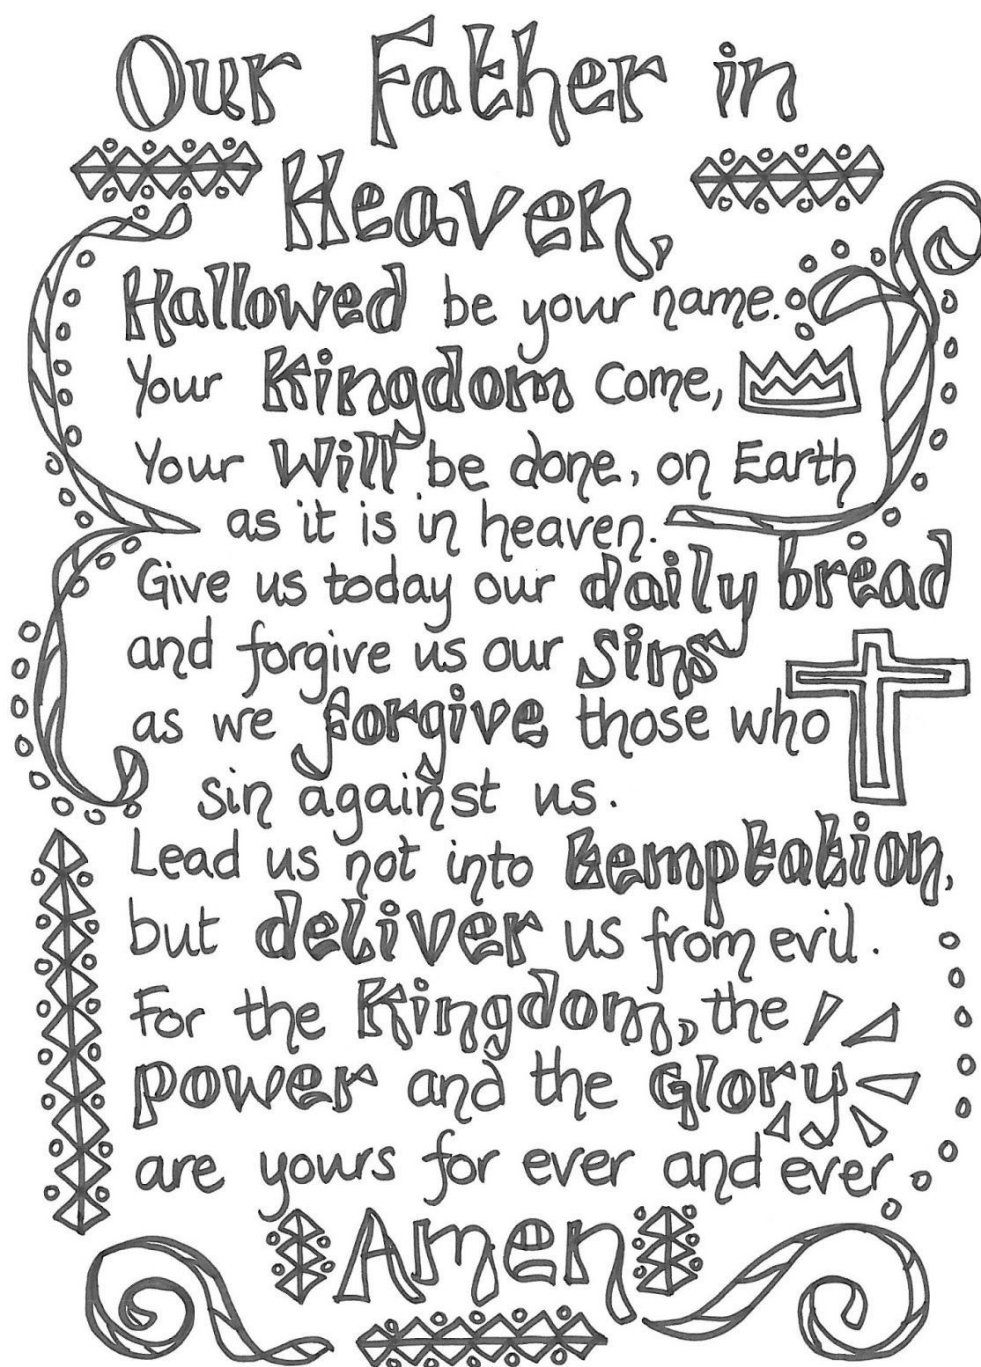 Our Father in
Heaven,
Hallowed be your name.
Your Kingdom Come,
Your Will be done, on Earth
as it is in heaven.
Give us today our daily bread
and forgive us our Sins
as we forgive those who
sin against us.
Lead us not into temptation,
but deliver us from evil.
For the Kingdom, the
power and the Glory
are yours for ever and ever.
Amen